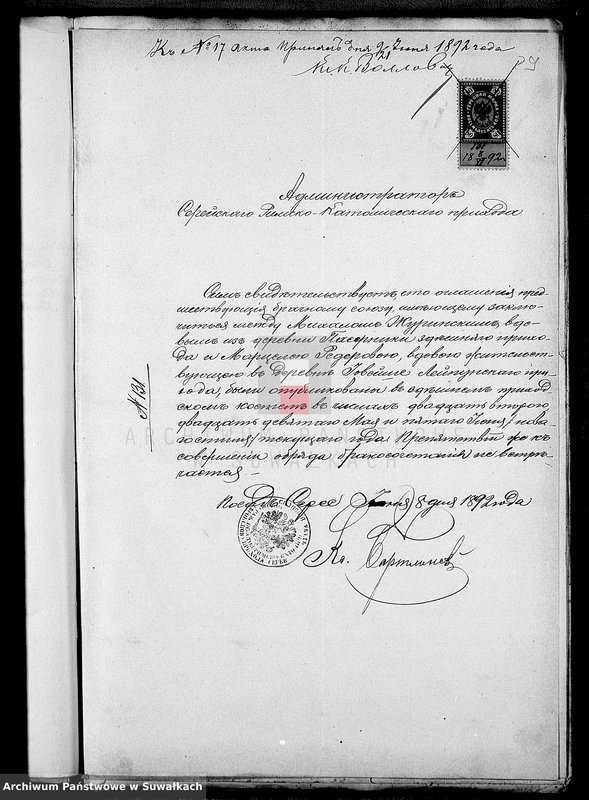 Къ № 17 акта Принятъ дня 9/21 Іюня 1892 года
18 8/VI 92 г
Администраторъ
Серейскаго Римско-Католическаго прихода
Симъ свидѣтельствуетъ, что оглашенія пред-
шествующія брачному союзу, имѣющему заклю-
читься между Михаломъ Журинскимъ, вдо-
вымъ изъ деревни здѣшняго прихо-
да и Марцелею Федоровою, вдовою жительст-
вующею въ деревнѣ Лейпунскаго при-
хода, были опубликованы въ здѣшнемъ приход-
скомъ костелѣ въ числахъ двадцать второго,
двадцать девятаго Мая и пятаго Іюня
текущаго года. Препятствій же къ
совершенію обряда бракосочетанія не встрѣ-
чается.
№ 31
Посадъ Серее Іюня 8 дня 1892 года
Кс.
ARCHIWUM PAŃSTWOWE
W SUWAŁKACH
Archiwum Państwowe w Suwałkach